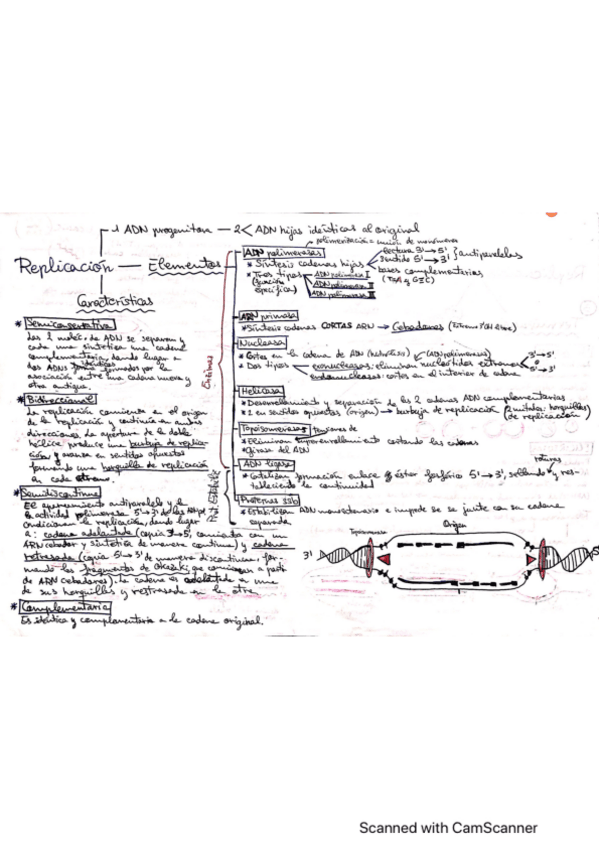 1 ADN progenitora — 2 < ADN hijas idénticas al original
Replicación — Elementos
Características
* Semiconservativa
Las 2 molec. de ADN se separan y
cada una sintetiza una cadena
complementaria, dando lugar a
dos ADNs formados por la
asociación entre una cadena nueva y
otra antigua.
* Bidireccional
La replicación comienza en el origen
de la replicación y continúa en ambas
direcciones. La apertura de la doble
hélice produce una burbuja de replica-
ción y avanza en sentidos opuestos
formando una horquilla de replicación
en cada extremo.
* Semidiscontinua
El apareamiento antiparalelo y la
actividad polimerasa 5'→3' de las
condicionan la replicación, dando lugar
a: cadena adelantada (copia 3'→5', comienza con un
ARN cebador y sintetiza de manera continua) y cadena
retrasada (copia 5'→3' de manera discontinua, for-
mando los fragmentos de Okazaki, que comienzan a partir
de ARN cebadores). La cadena es adelantada en una
de sus horquillas y restrasada en la otra
* Complementaria
Es idéntica y complementaria a la cadena original.
Enzimas
polimerización = unión de monómeros
ADN polimerasas
* Síntesis cadenas hijas
lectura 3'→5'
sentido 5'→3' } antiparalelas
bases complementarias
* Tres tipos
(función
específica)
ADN polimerasa I
ADN polimerasa II
ADN polimerasa III
ARN primasa
* Síntesis cadenas CORTAS ARN → Cebadores
Nucleasa
* Cortes en la cadena de ADN (ADN polimerasas)
* Dos tipos
exonucleasas: eliminan nucleótidos extremos
3'→5'
5'→3'
endonucleasas: cortes en el interior de cadena
Helicasa
* Desenrollamiento y separación de las 2 cadenas ADN complementarias
* 2 en sentidos opuestos (origen) → burbuja de replicación (2 mitades: horquillas)
(de replicación)
Topoisomerasas
* Eliminan superenrollamiento cortando las cadenas
* Girasa del ADN
ADN ligasa
roturas
* Catalizan formación enlace éster fosfórico 5'→3', sellando y res-
tableciendo la continuidad
Proteínas SSB
* Estabilizan ADN monocatenario e impide se se junte con su cadena
separada
Origen
Topoisomerasa
3'
5'
Scanned with CamScanner